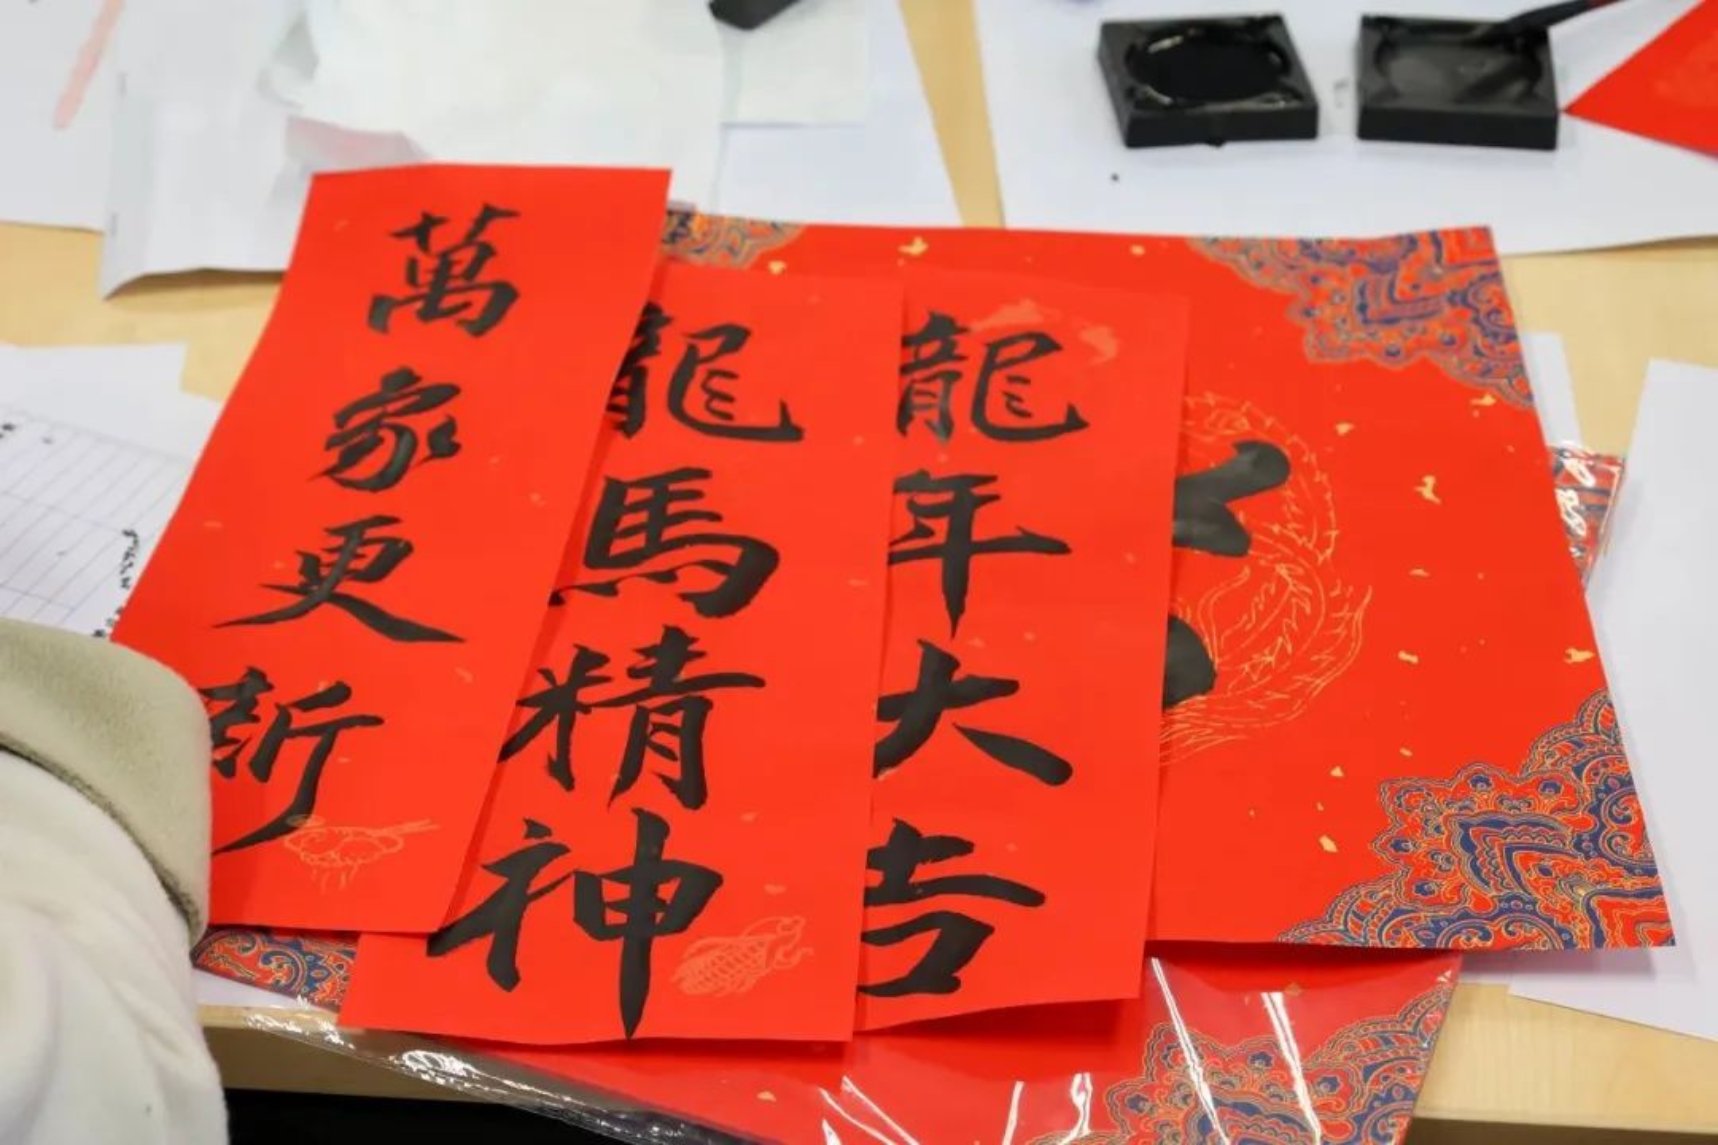 萬家更新
龍馬精神
龍年大吉